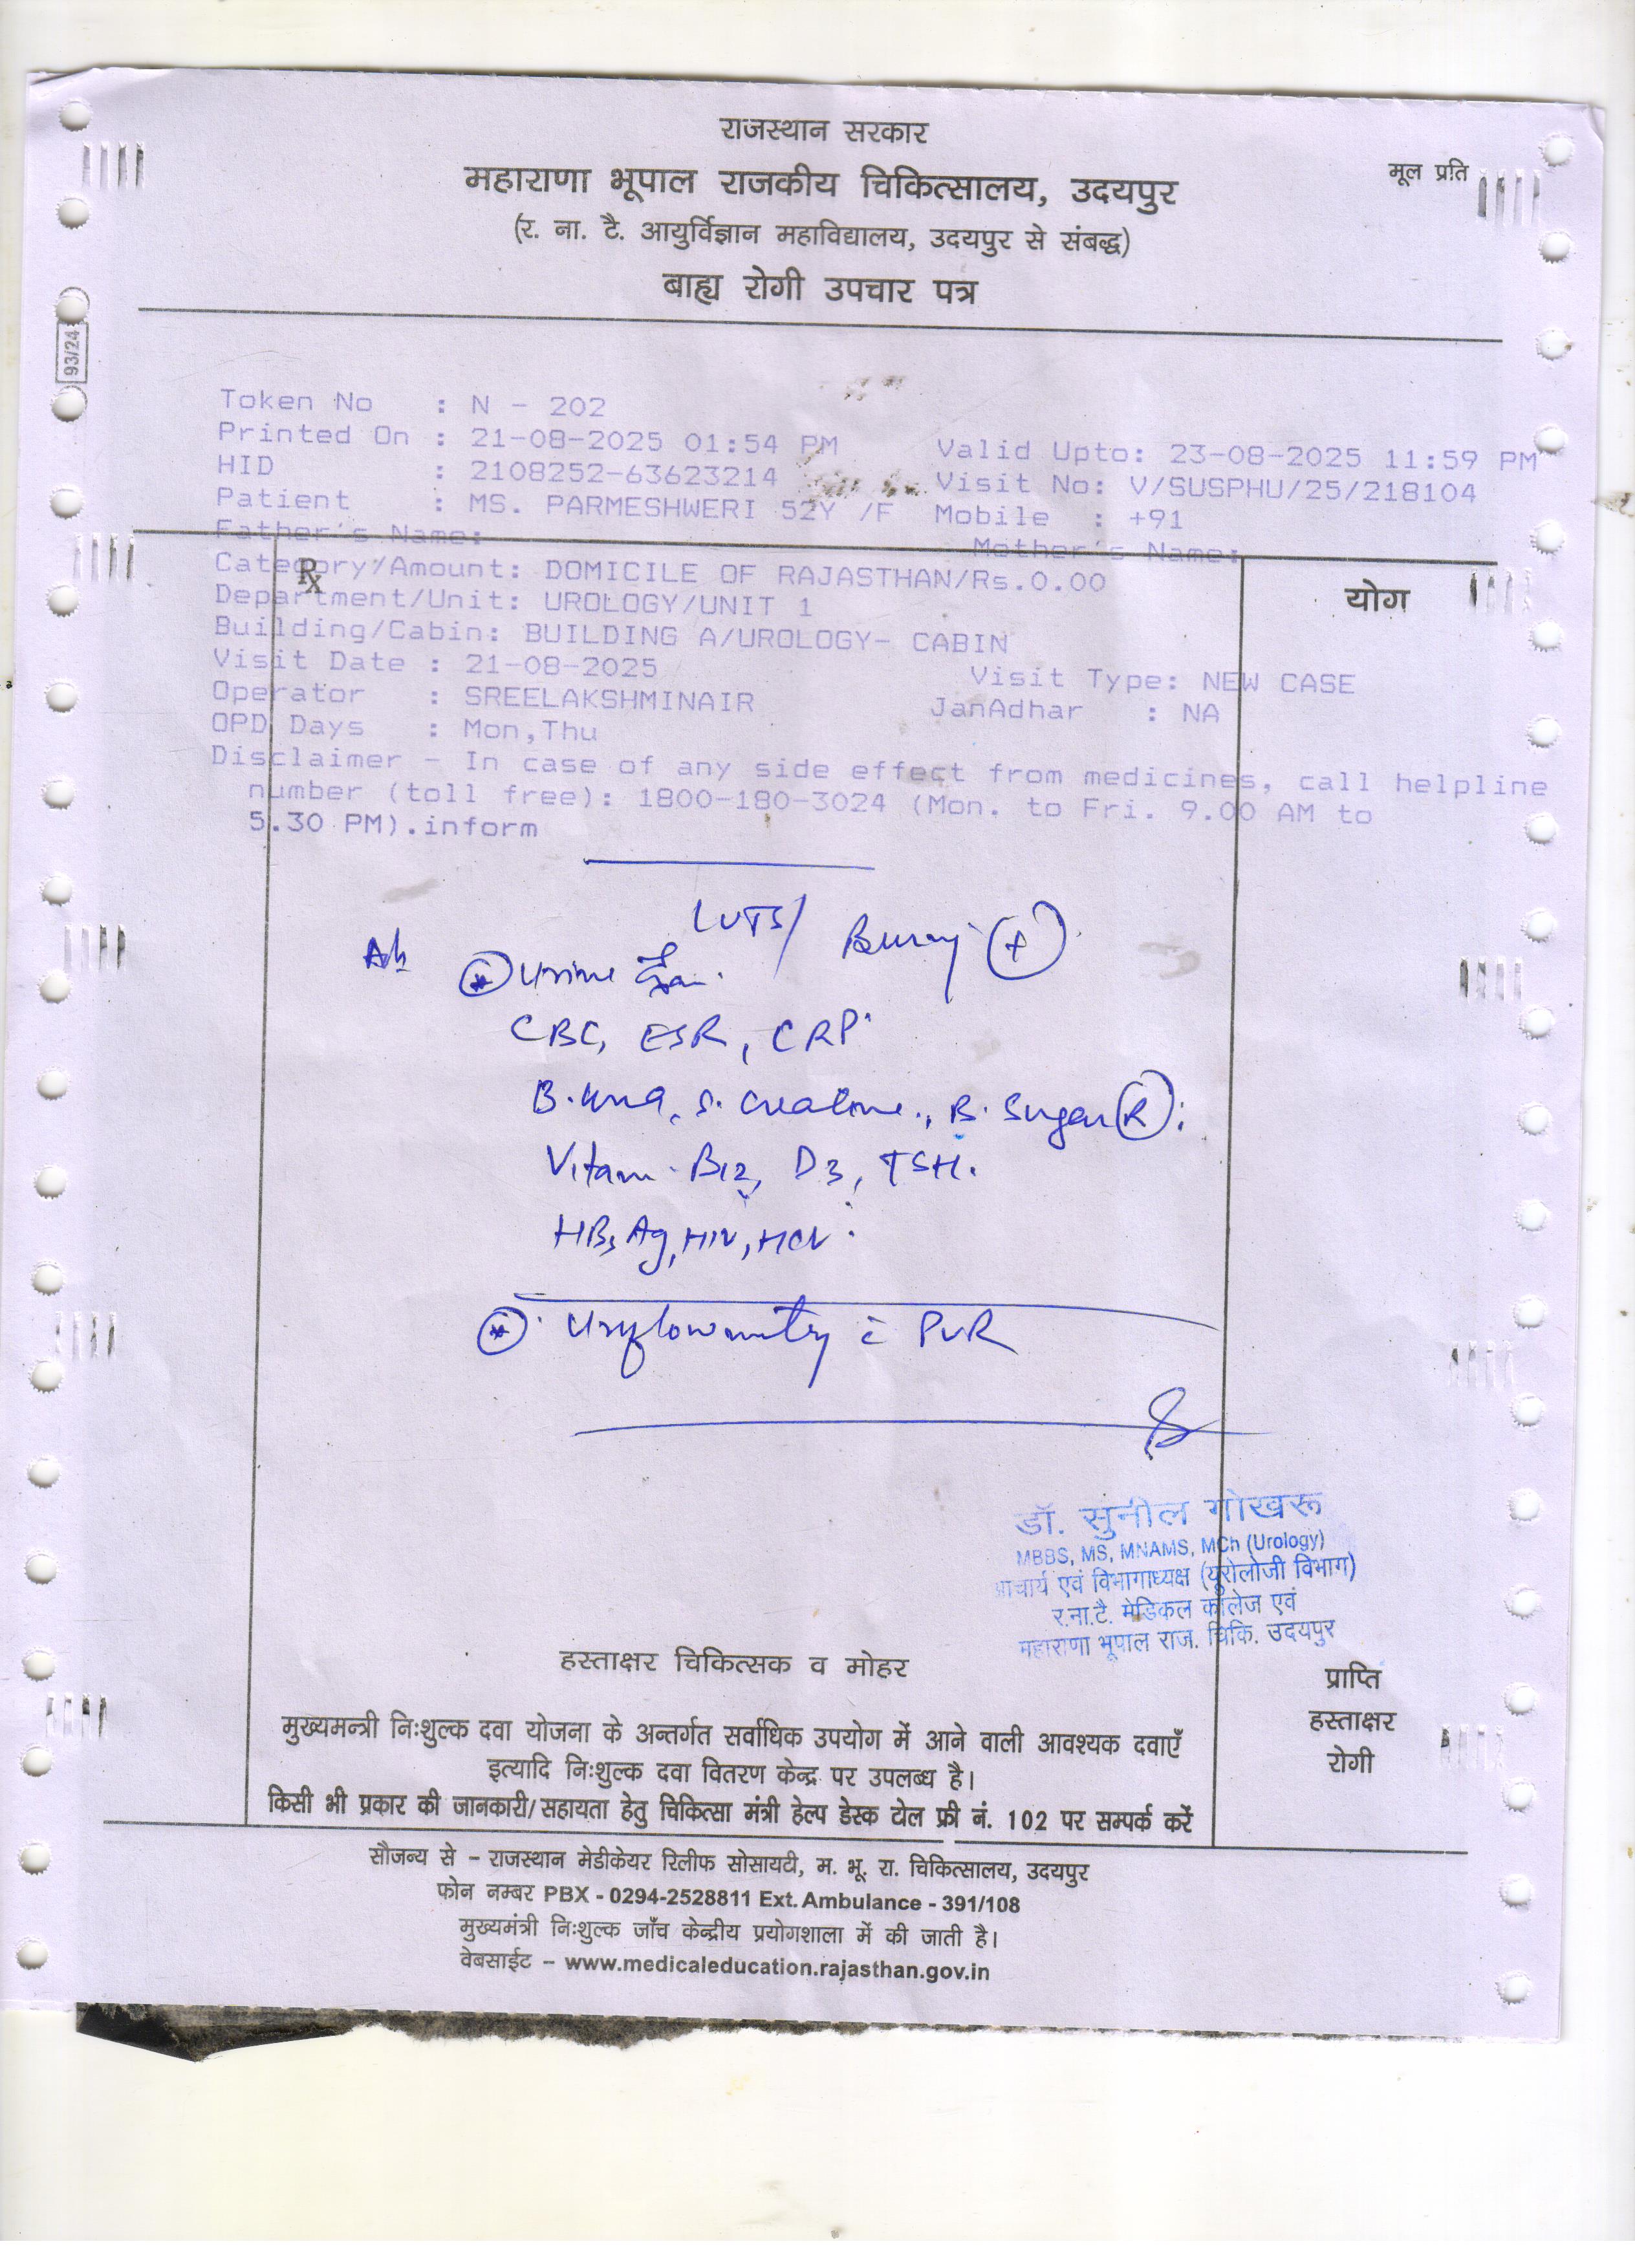 राजस्थान सरकार
मूल प्रति
महाराणा भूपाल राजकीय चिकित्सालय, उदयपुर
(र. ना. टै. आयुर्विज्ञान महाविद्यालय, उदयपुर से संबद्ध)
बाह्य रोगी उपचार पत्र
93/24
Token No : N - 202
Printed On : 21-08-2025 01:54 PM Valid Upto: 23-08-2025 11:59 PM
HID : 2108252-63623214 Visit No: V/SUSPHU/25/218104
Patient : MS. PARMESHWERI 52Y /F Mobile : +91
Father's Name: Mother's Name:
Category/Amount: DOMICILE OF RAJASTHAN/Rs.0.00
Rx
योग
Department/Unit: UROLOGY/UNIT 1
Building/Cabin: BUILDING A/UROLOGY- CABIN
Visit Date : 21-08-2025 Visit Type: NEW CASE
Operator : SREELAKSHMINAIR JanAdhar : NA
OPD Days : Mon,Thu
Disclaimer - In case of any side effect from medicines, call helpline
number (toll free): 1800-180-3024 (Mon. to Fri. 9.00 AM to
5.30 PM).inform
LUTS/ (+)
Urine
CBC, ESR, CRP
B. Urea, S. Creatine., B. Sugar (R);
Vitam. B12, D3, TSH.
HBsAg, HIV, HCV
Uroflowmetry c PVR
डॉ. सुनील गोखरू
MBBS, MS, MNAMS, MCh (Urology)
आचार्य एवं विभागाध्यक्ष (यूरोलोजी विभाग)
र.ना.टै. मेडिकल कॉलेज एवं
महाराणा भूपाल राज. चिकि. उदयपुर
हस्ताक्षर चिकित्सक व मोहर
प्राप्ति
हस्ताक्षर
रोगी
मुख्यमन्त्री निःशुल्क दवा योजना के अन्तर्गत सर्वाधिक उपयोग में आने वाली आवश्यक दवाएँ
इत्यादि निःशुल्क दवा वितरण केन्द्र पर उपलब्ध है।
किसी भी प्रकार की जानकारी/सहायता हेतु चिकित्सा मंत्री हेल्प डेस्क टोल फ्री नं. 102 पर सम्पर्क करें
सौजन्य से – राजस्थान मेडीकेयर रिलीफ सोसायटी, म. भू. रा. चिकित्सालय, उदयपुर
फोन नम्बर PBX - 0294-2528811 Ext. Ambulance - 391/108
मुख्यमंत्री निःशुल्क जाँच केन्द्रीय प्रयोगशाला में की जाती है।
वेबसाईट – www.medicaleducation.rajasthan.gov.in